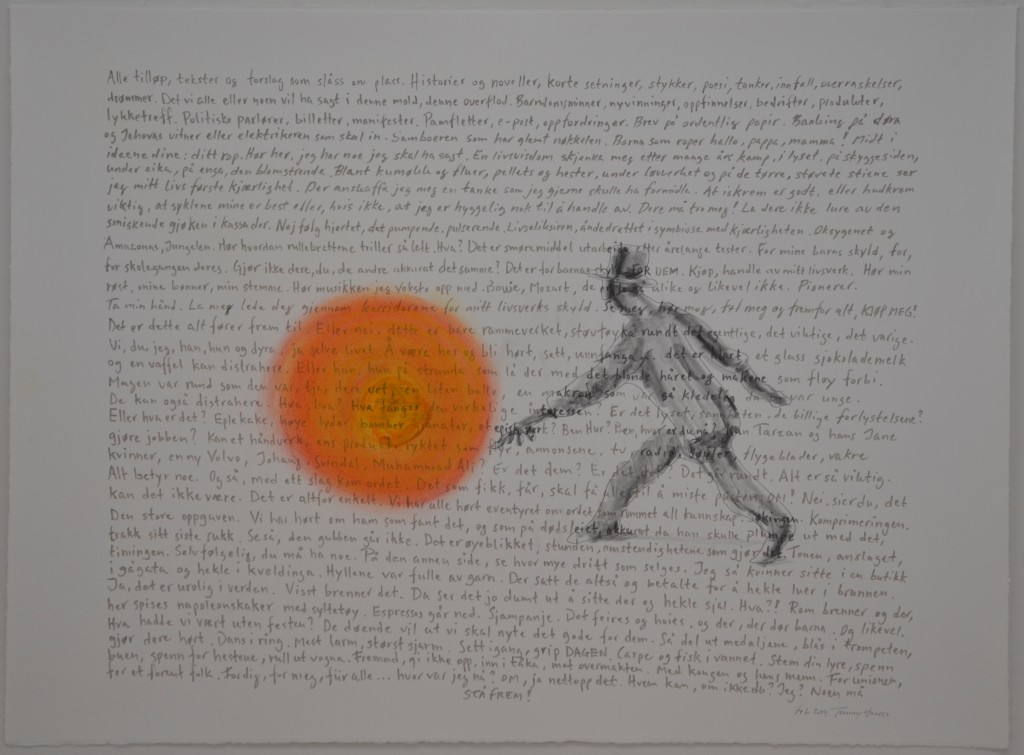 Alle tilløp, tekster og forslag som slåss om plass. Historier og noveller, korte setninger, stykker, poesi, tanker, innfall, overraskelser,
drømmer. Det vi alle eller noen vil ha sagt i denne mold, denne overflod. Barndomsminner, nyvinninger, oppfinnelser, bedrifter, produkter,
lykketreff. Politiske parlører, billetter, manifester. Pamfletter, e-post, oppfordringer. Brev på ordentlig papir. Banking på døra
og Jehovas vitner eller elektrikeren som skal inn. Samboeren som har glemt nøkkelen. Barna som roper hallo, pappa, mamma! Midt i
ideene dine: ditt rop. Hør her, jeg har noe jeg skal ha sagt. En livsvisdom skjenka meg etter mange års kamp, i lyset, på skyggesiden,
under eika, på enga, den blomstrende. Blant humøbla og fluer, pellets og hester, under løvverket og på de tørre, støvede stiene ser
jeg mitt livs første kjærlighet. Der anskaffa jeg meg en tanke som jeg gjerne skulle ha formidla. At iskrem er godt, eller hudkrem
viktig, at syklene mine er best eller, hvis ikke, at jeg er hyggelig nok til å handle av. Dere må tro meg! La dere ikke lure av den
smiskende gjøken i kassader. Nei følg hjertet, det pumpende, pulserende. Livseliksiren, åndedrettet i symbiose med kjærligheten. Oksygenet og
Amazonas, Jungelen. Hør hvordan rullebrettene triller så lett. Hva? Det er smøremiddel utarbeida etter årelange tester. For mine barns skyld, far,
for skolegangen deres. Gjør ikke dere, du, de andre akkurat det samme? Det er for barnas skyld. FOR DEM. Kjøp, handle av mitt livsverk. Hør min
røst, mine bønner, min stemme. Hør musikken jeg vokste opp med. Bowie, Mozart, de er jo så alike og likevel ikke. Pionerer.
Ta min hånd. La meg lede deg gjennom korridorene for mitt livsverks skyld. Se meg, hør meg, føl meg og framfor alt, KJØP MEG!
Det er dette alt fører frem til. Eller nei, dette er bare rammeverket, støvføyka rundt det egentlige, det viktige, det varige.
Vi, du, jeg, han, hun og dyra, ja selve livet. Å være her og bli hørt, sett, unnfanga er det er klart, et glass sjokolademelk
og en vaffel kan distrahere. Eller hun, hun på stranda som lå der med det blonde håret og måkene som fløy forbi.
Magen var rund som den var, tja, dere vet, en liten ball, en makron som var så kledelig da hun var unge.
De kan også distrahere. Hva, hva? Hva fanger den virkelige interessen? Er det lyset, sannheten, de billige forlystelsene?
Eller hva er det? Eplekake, høye lyder, bomber, senator, et episk verk? Ben Hur? Ben, hvor er du nå? Kan Tarzan og hans Jane
gjøre jobben? Kan et håndverk, ens produkt, ryktet som flyr, annonsene, tv, radio, jingler, flygeblader, vakre
kvinner, en ny Volvo, Johaug, Svindal, Muhammad Ali? Er det dem? Er det det? Det går rundt. Alt er så viktig.
Alt betyr noe. Også, med ett slag kom ordet. Det som fikk, får, skal få alle til å miste pusten, OM! Nei, sier du, det
kan det ikke være. Det er altfor enkelt. Vi har alle hørt eventyret om ordet som rommet all kunnskap. Økingen. Komprimeringen.
Den store oppgaven. Vi har hørt om ham som fant det, og som på dødsleiet, akkurat da han skulle plumpe ut med det,
trakk sitt siste sukk. Seså, den gubben går ikke. Det er øyeblikket, stunden, omstendighetene som gjør det. Tonen, anslaget,
timingen. Selvfølgelig, du må ha noe. På den annen side, se hvor mye dritt som selges. Jeg så kvinner sitte i en butikk
i gågata og hekle i kveldinga. Hyllene var fulle av garn. Der satt de altså og betalte for å hekle luer i brannen.
Ja, det er urolig i verden. Visst brenner det. Da ser det jo dumt ut å sitte der og hekle sjal. Hva?! Rom brenner og der,
her spises napoleonskaker med syltetøy. Espresso går ned. Sjampanje. Det feires og hoies. og der, der dør barna. Og likevel.
Hva hadde vi vært uten festen? De døende vil at vi skal nyte det gode for dem. Så del ut medaljene, blås i trompeten,
gjør dere hørt. Dans i ring. Mest larm, størst sjarm. Sett igang, grip DAGEN. Carpe og fisk i vannet. Stem din lyre, spenn
buen, spenn for hestene, rull ut vogna. Fremad, gi ikke opp, inn i tåka, mot overmakten. Med kongen og hans menn. For unionen,
for et forent folk. For dig, for meg, für alle... hvor var jeg nå? OM, ja nettopp det. Hvem kan, om ikke du? Jeg? Noen må
STÅ FREM!
feb 2015